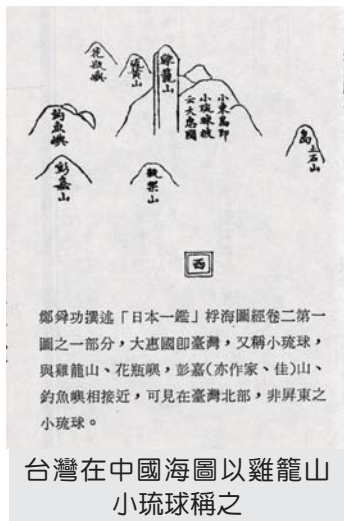 花瓶嶼
硫黄山
雞籠山
小東島即
小琉球彼
云大惠國
釣魚嶼
彭嘉山
瓶架山
島土石山
西
鄭舜功撰述「日本一鑑」桴海圖經卷二第一
圖之一部分，大惠國卽臺灣，又稱小琉球，
與雞龍山、花瓶嶼，彭嘉(亦作家、佳)山、
釣魚嶼相接近，可見在臺灣北部，非屏東之
小琉球。
台灣在中國海圖以雞籠山
小琉球稱之